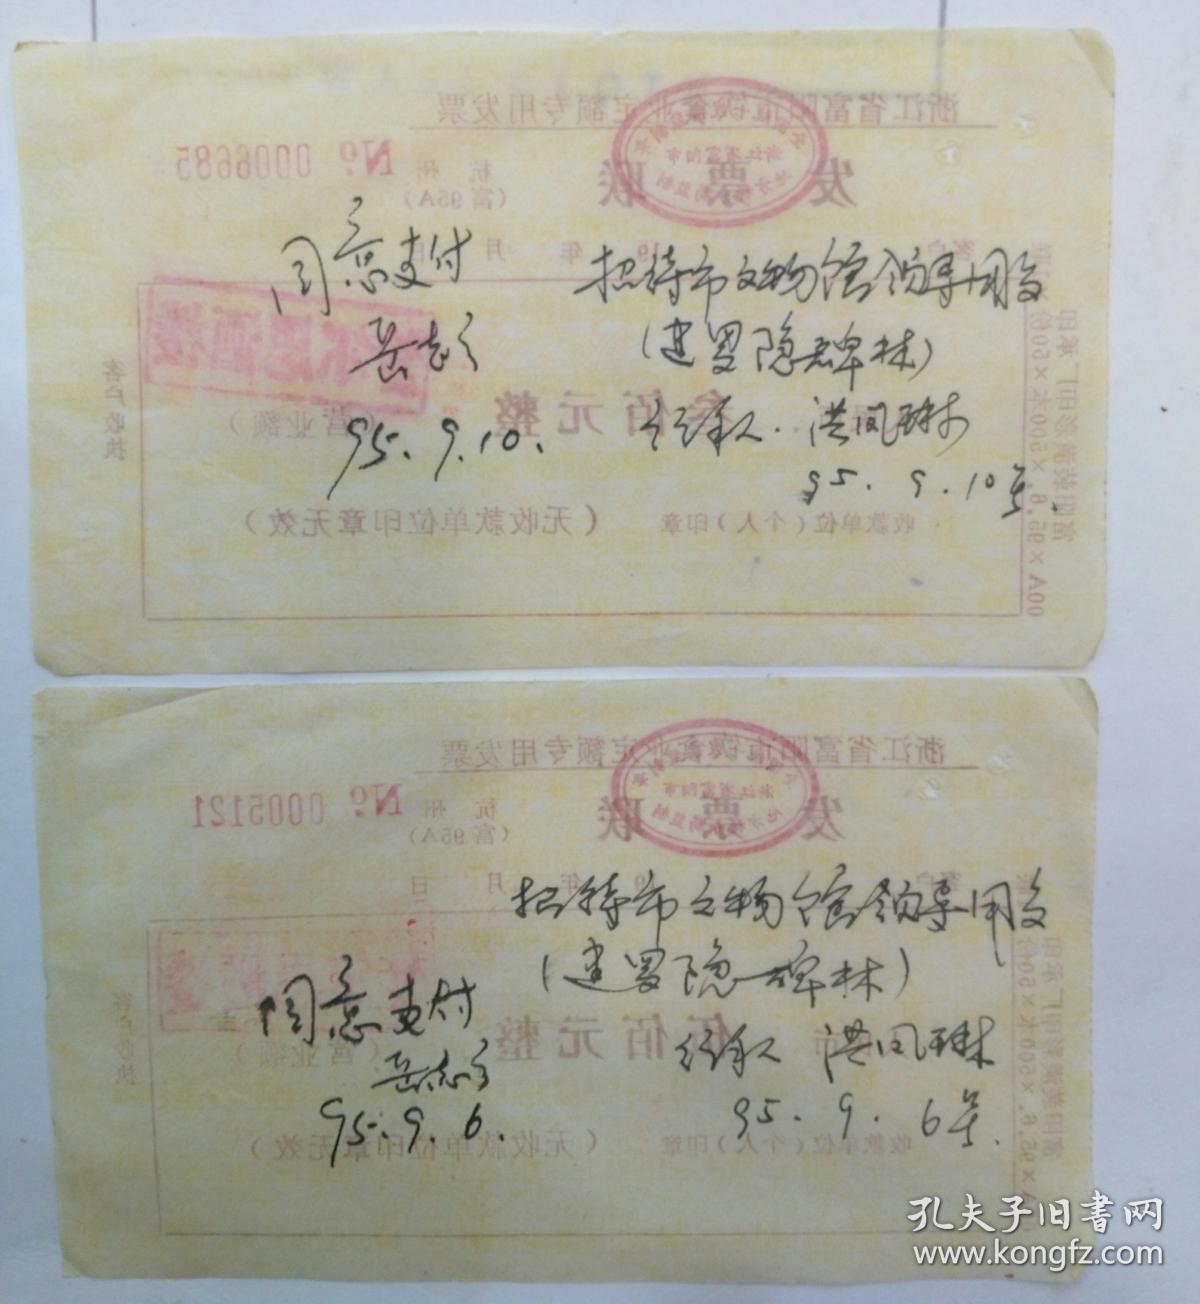 浙江省富阳市饮食业定额专用发票
发票联
杭州
(富95A)
No. 0006685
年 月 日
同意支付
岳志方
95.9.10.
招待市文物馆领导用食
(建罗隐碑林)
叁佰元整
(营业额)
经手人. 洪凤琳
95.9.10号.
收款单位(个人)印章
(无收款单位印章无效)
客户收执
浙江省富阳市饮食业定额专用发票
发票联
杭州
(富95A)
No. 0005121
年 月 日
招待市文物馆领导用食
(建罗隐碑林)
同意支付
岳志方
95.9.6.
伍佰元整
(营业额)
经手人 洪凤琳
95.9.6号.
收款单位(个人)印章
(无收款单位印章无效)
孔夫子旧书网
www.kongfz.com